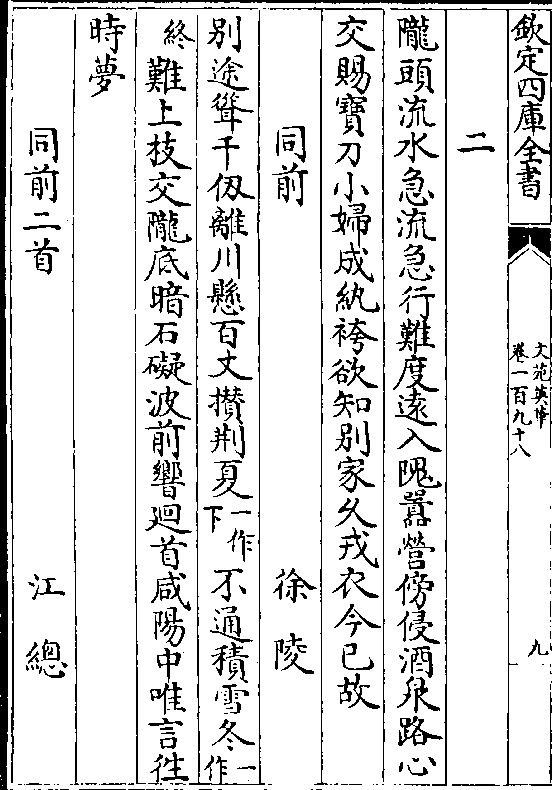 欽定四庫全書
文苑英華
卷一百九十八
九
二
隴頭流水急流急行難度遠入隗囂營傍侵酒泉路心
交賜寶刀小婦成紈袴欲知別家久戎衣今已故
同前 徐陵
別途聳千仭離川懸百丈攅荆夏一作下不通積雪冬一作
終難上枝交隴底暗石礙波前響廻首咸陽中唯言徃
時夢
同前二首 江總